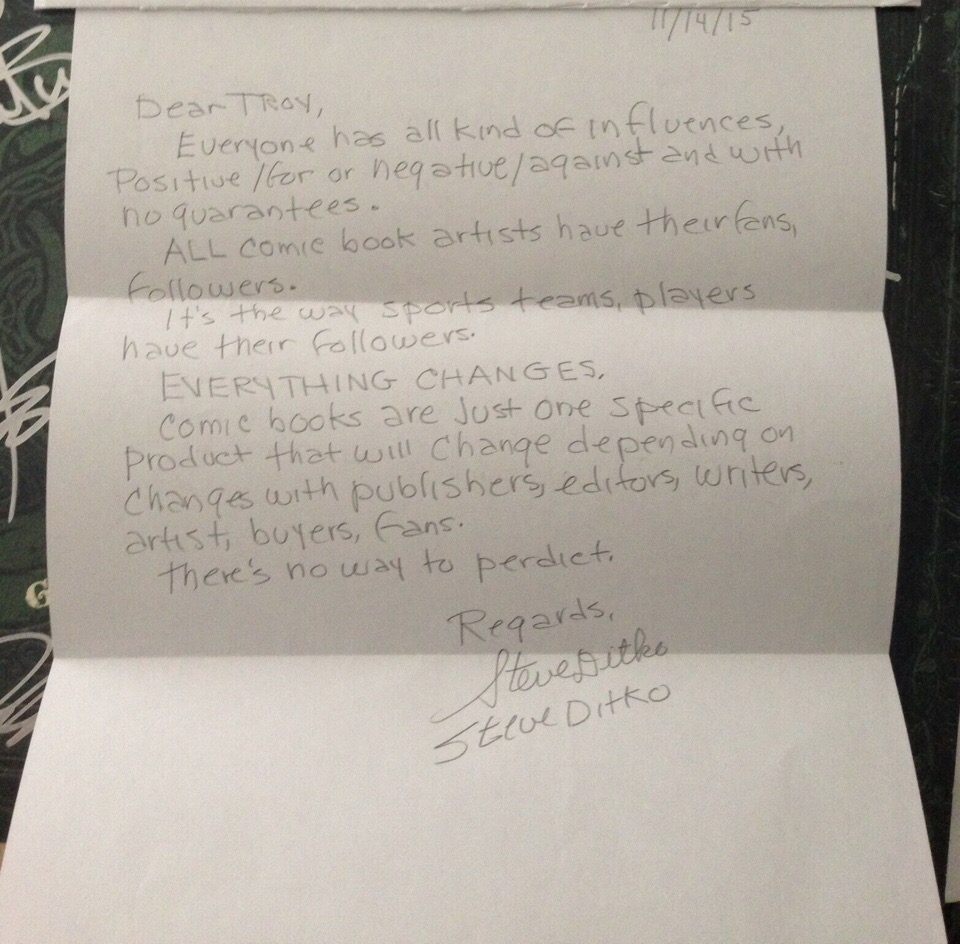 11/14/15
Dear TROY,
Everyone has all kind of influences,
Positive/for or negative/against and with
no guarantees.
ALL comic book artists have their fans,
followers.
It's the way sports teams, players
have their followers.
EVERYTHING CHANGES.
Comic books are just one specific
product that will change depending on
changes with publishers, editors, writers,
artist, buyers, fans.
There's no way to perdict.
Regards,
Steve Ditko
Steve Ditko
G